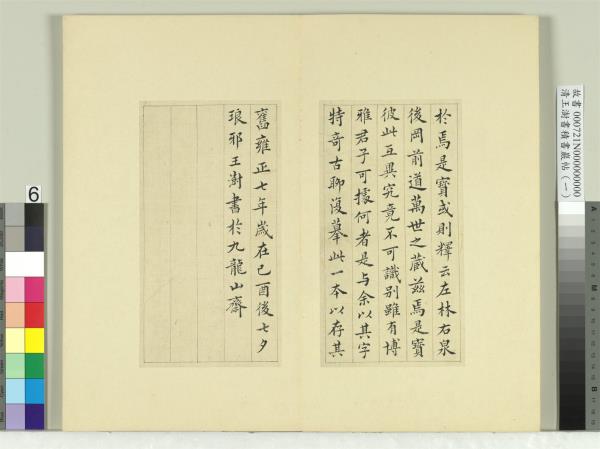 於焉是寶或則釋云左林右泉
後岡前道萬世之藏茲焉是寶
彼此互異究竟不可識別雖有博
雅君子可據何者是与余以其字
特奇古聊復摹此一本以存其
舊雍正七年歲在己酉後七夕
琅邪王澍書於九龍山齋
故書 000721N000000000
清王澍書積書巖帖(一)
6